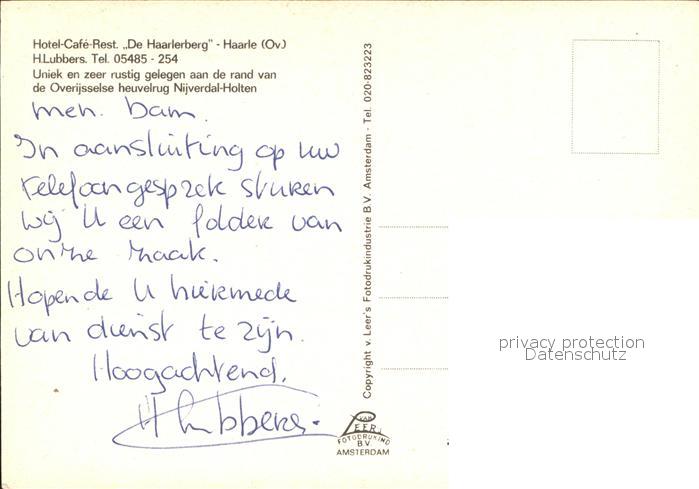 Hotel-Café-Rest. „De Haarlerberg" - Haarle (Ov.)
H.Lubbers. Tel. 05485 - 254
Uniek en zeer rustig gelegen aan de rand van
de Overijsselse heuvelrug Nijverdal-Holten
men. Dam.
In aansluiting op uw
telefoongesprek sturen
wij U een folder van
onze zaak.
Hopende U hiermede
van dienst te zijn.
Hoogachtend,
H Lubbers.
Copyright v. Leer's Fotodrukindustrie B.V. Amsterdam - Tel. 020-823223
VAN
LEER
FOTODRUKIND
B.V.
AMSTERDAM
privacy protection
Datenschutz